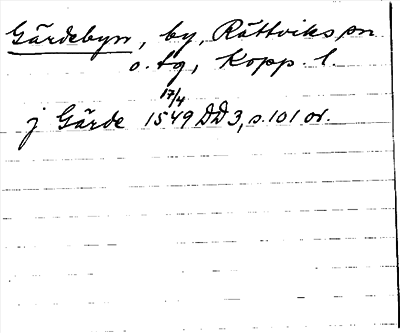 Gärdebyn, by, Rättviks sn
o. tg, Kopp. l.
17/4
j Gärde 1549 DD 3, s. 101 or.